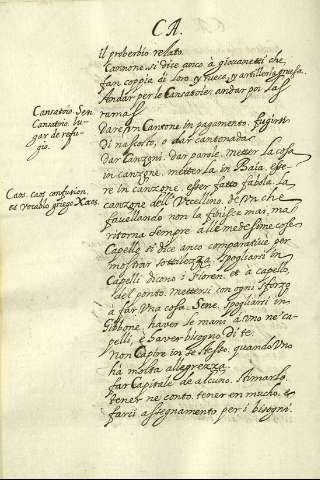 CA.
il proberbio relato.
Cannone. si dice gioco à giovanetti che,
fan coppia di loro, y nuece, y artilleria gruesa.
Andar per le Cansatoie. andar por las
ramas
Cansatoio. Sen.
Cansatoio. lu-
gar de refu-
gio.
Dare un Cantone in pagamento. fugirse
Di nascosto, o dar cantonada.
Dar Canzoni. Dar parole. metter la cosa
in canzone. metterla in Baia. esse-
re in canzone. esser fatto fabola. la
Caos. caos, confusion,
es vocablo griego Xaos.
canzone dell' Uccellino. de un che
favellando non la finisce mai, ma
ritorna sempre alle medesime cose
Capello si dice anco comparative per
mostrar sottilezza. Spogliarsi in
Capelli dicono i Fioren. et à capello,
del ponto. mettersi con ogni sforzo
à far una cosa. Sene. Spogliarsi in
Giubbone. haver le mani à uno ne ca-
pelli, è haver bisogno di te.
Non Capire in se stesso. quando uno
hà molta allegrezza.
far Capitale de alcuno. stimarlo.
tener ne conto. tener en mucho. et
farci assegnamento per i bisogni.